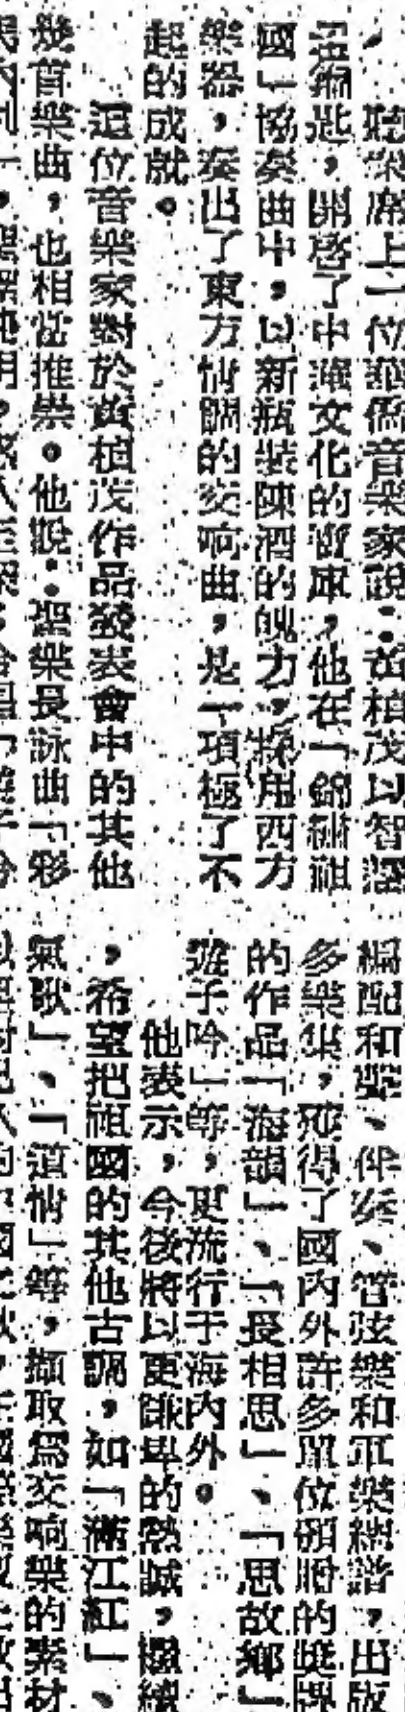 聽衆席上一位華僑音樂家說：黃植茂以智慧
鑰匙，開啓了中華文化的寶庫，他在「錦綉祖
國」協奏曲中，以新瓶裝陳酒的魄力，採用西方
樂器，奏出了東方情調的交响曲，是一項極了不
起的成就。
這位音樂家對於黃植茂作品發表會中的其他
幾首樂曲，也相當推崇。他說：聖樂長詠曲「彩
編配和聲、伴奏、管弦樂和軍樂總譜，出版
多樂集，獲得了國內外許多單位頒贈的獎牌
的作品「海韻」、「長相思」、「思故鄉」
遊子吟」等，更流行于海內外。
他表示，今後將以更謙卑的熱誠，繼續
，希望把祖國的其他古調，如「滿江紅」、
氣歌」、「道情」等，擷取爲交响樂的素材